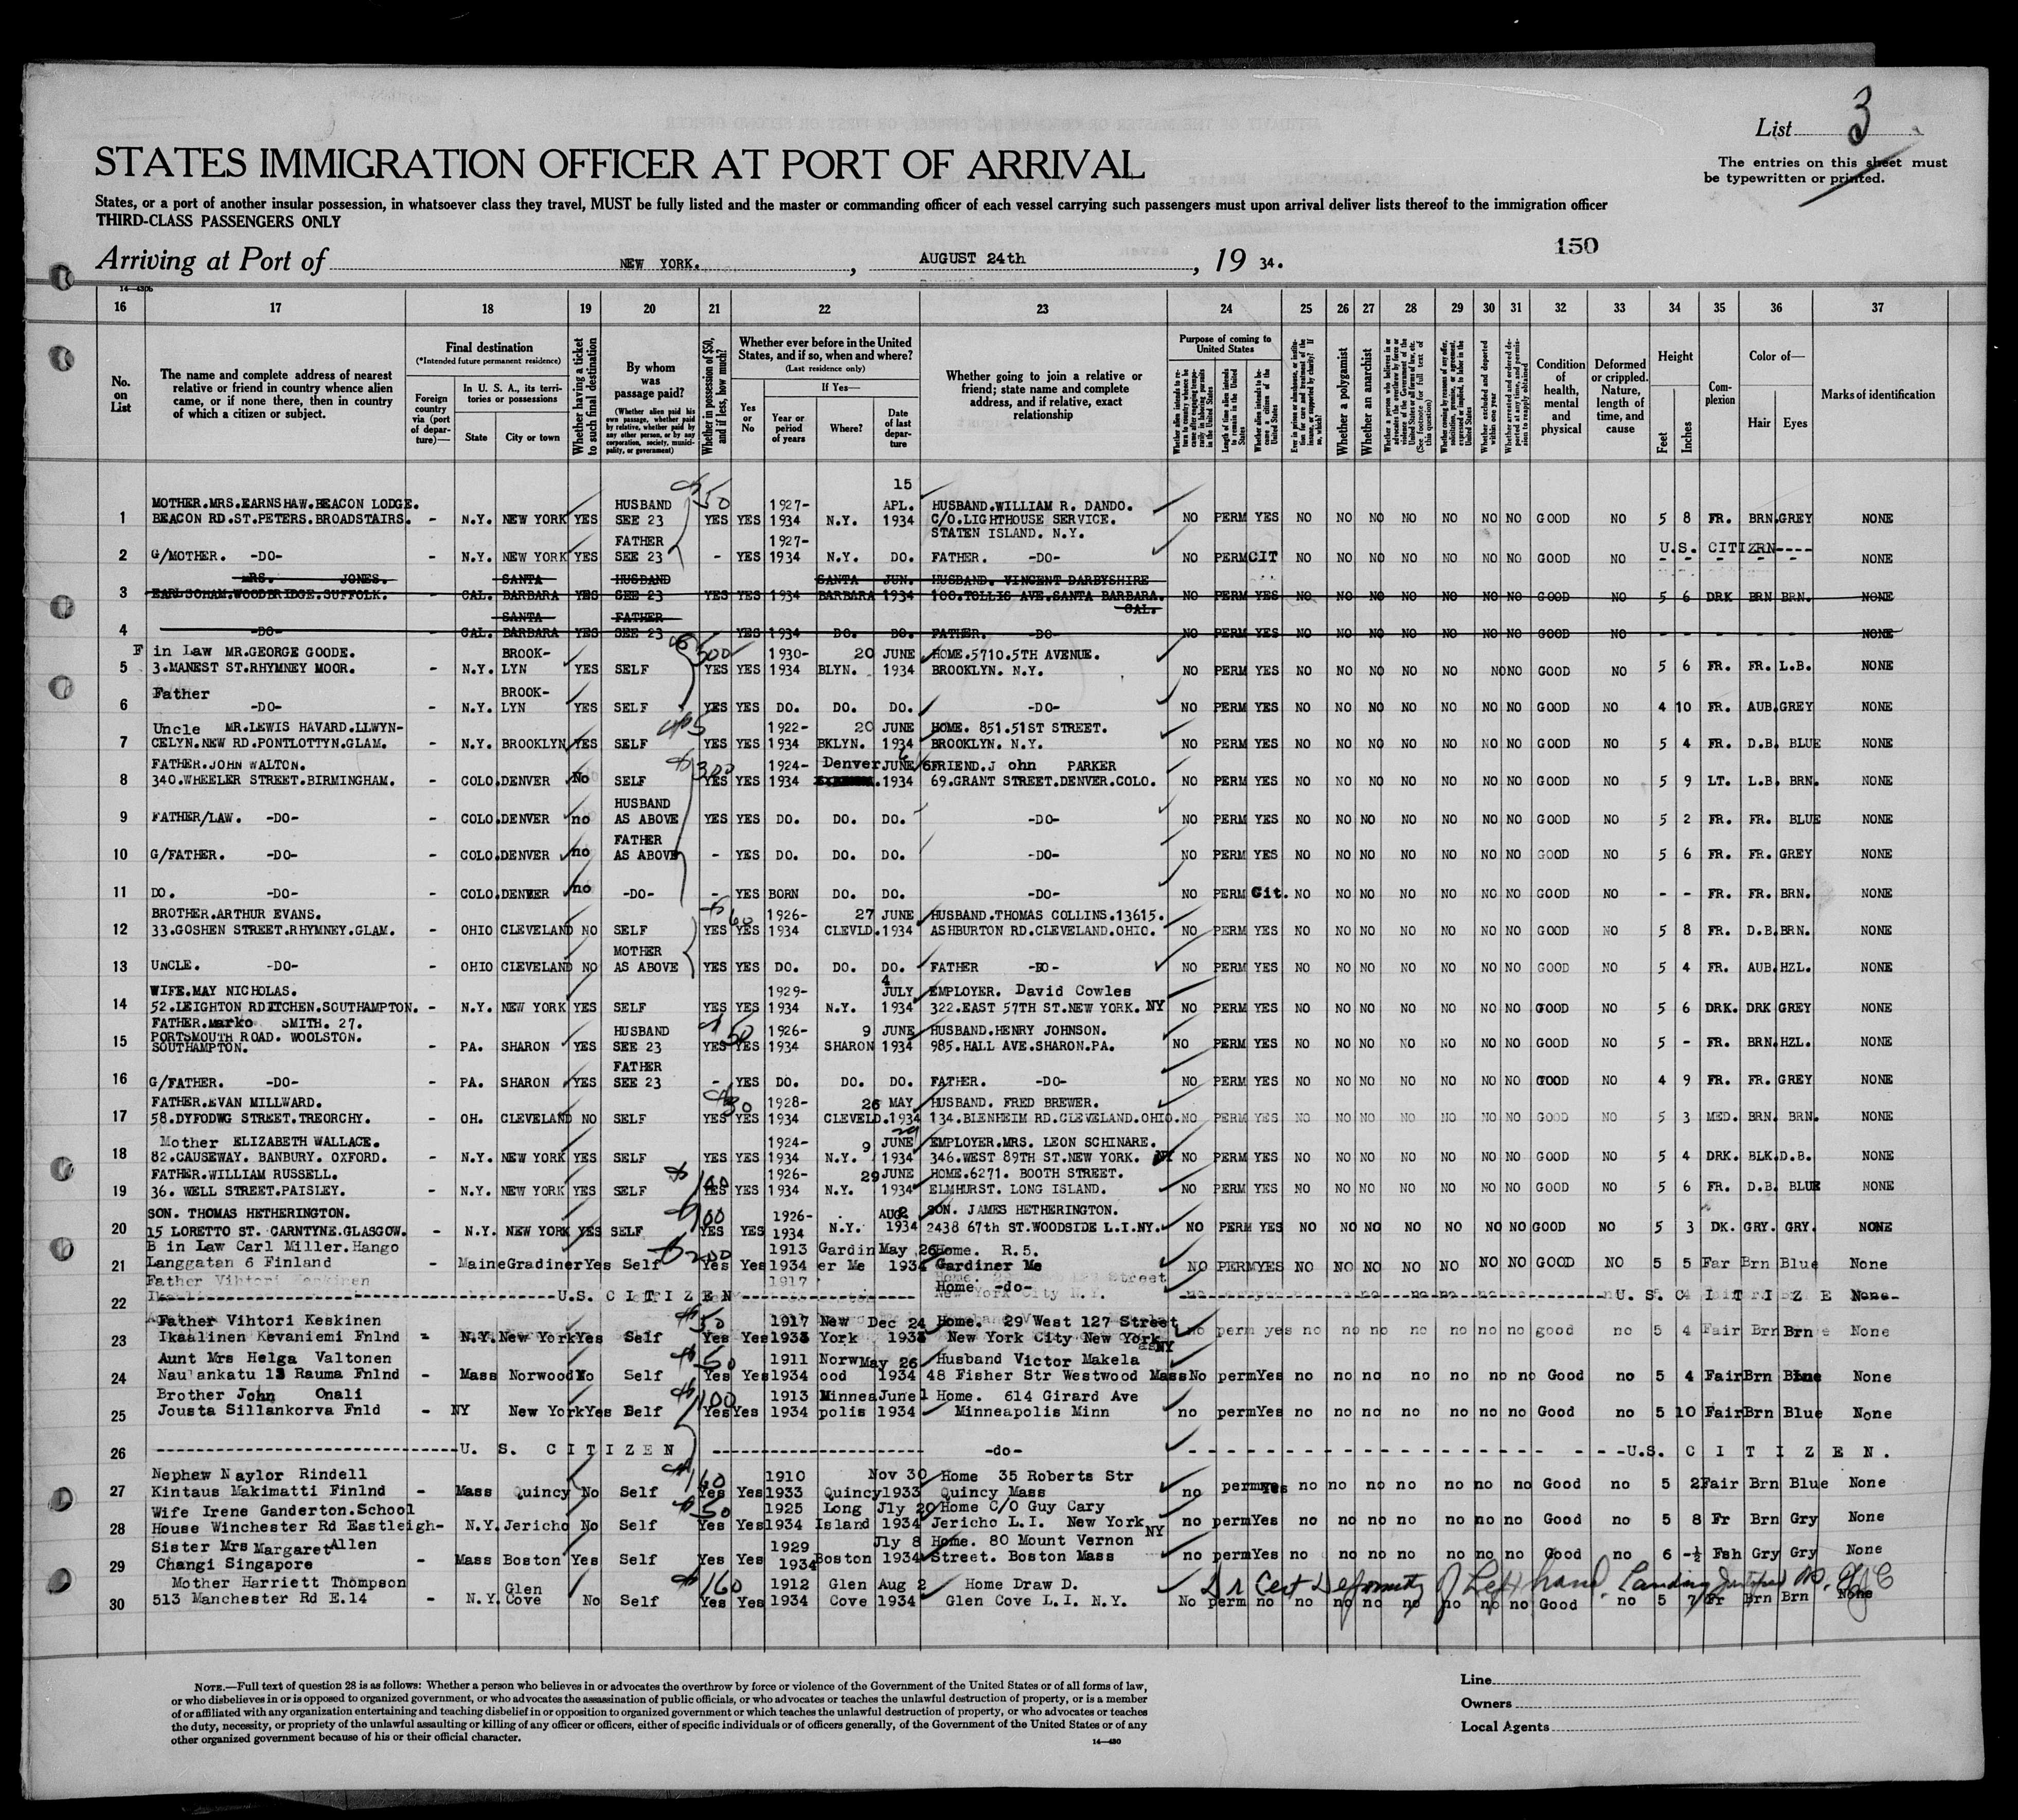 List 3
The entries on this sheet must
be typewritten or printed.
STATES IMMIGRATION OFFICER AT PORT OF ARRIVAL
States, or a port of another insular possession, in whatsoever class they travel, MUST be fully listed and the master or commanding officer of each vessel carrying such passengers must upon arrival deliver lists thereof to the immigration officer
THIRD-CLASS PASSENGERS ONLY
150
Arriving at Port of NEW YORK. , AUGUST 24th , 19 34.
14—430b
16 17 18 19 20 21 22 23 24 25 26 27 28 29 30 31 32 33 34 35 36 37
No. on List
The name and complete address of nearest relative or friend in country whence alien came, or if none there, then in country of which a citizen or subject.
Final destination
(*Intended future permanent residence)
Foreign country via (port of departure)—
In U. S. A., its territories or possessions
State City or town
Whether having a ticket to such final destination
By whom was passage paid?
(Whether alien paid his own passage, whether paid by relative, whether paid by any other person, or by any corporation, society, municipality, or government)
Whether in possession of $50, and if less, how much?
Whether ever before in the United States, and if so, when and where?
(Last residence only)
Yes or No
If Yes—
Year or period of years Where? Date of last departure
Whether going to join a relative or friend; state name and complete address, and if relative, exact relationship
Purpose of coming to United States
Whether a polygamist
Whether an anarchist
Condition of health, mental and physical
Deformed or crippled. Nature, length of time, and cause
Height
Feet Inches
Complexion
Color of—
Hair Eyes
Marks of identification
15
MOTHER.MRS.EARNSHAW.BEACON LODGE. HUSBAND $50 1927- APL. HUSBAND.WILLIAM R. DANDO.
1 BEACON RD.ST.PETERS.BROADSTAIRS. - N.Y. NEW YORK YES SEE 23 YES YES 1934 N.Y. 1934 C/O.LIGHTHOUSE SERVICE. NO PERM YES NO NO NO NO NO NO NO GOOD NO 5 8 FR. BRN. GREY NONE
STATEN ISLAND. N.Y.
FATHER 1927- U.S. CITIZRN----
2 G/MOTHER. -DO- - N.Y. NEW YORK YES SEE 23 - YES 1934 N.Y. DO. FATHER. -DO- NO PERM CIT NO NO NO NO NO NO NO GOOD NO - - - - - NONE
MRS. JONES. SANTA HUSBAND SANTA JUN. HUSBAND. VINCENT DARBYSHIRE
3 EARLSOHAM.WOODBRIDGE.SUFFOLK. - CAL. BARBARA YES SEE 23 YES YES 1934 BARBARA 1934 100.TOLLIS AVE.SANTA BARBARA. NO PERM YES NO NO NO NO NO NO NO GOOD NO 5 6 DRK BRN BRN. NONE
CAL.
SANTA FATHER
4 -DO- - CAL. BARBARA YES SEE 23 YES 1934 DO. DO. FATHER. -DO- NO PERM YES NO NO NO NO NO NO NO GOOD NO - - - - - NONE
F in Law MR.GEORGE GOODE. BROOK- $500 1930- 20 JUNE HOME.5710.5TH AVENUE.
5 3.MANEST ST.RHYMNEY MOOR. - N.Y. LYN YES SELF YES YES 1934 BLYN. 1934 BROOKLYN. N.Y. NO PERM YES NO NO NO NO NO NO NO GOOD NO 5 6 FR. FR. L.B. NONE
Father BROOK-
6 -DO- - N.Y. LYN YES SELF YES YES DO. DO. DO. -DO- NO PERM YES NO NO NO NO NO NO NO GOOD NO 4 10 FR. AUB. GREY NONE
Uncle MR.LEWIS HAVARD.LLWYN- $5 1922- 20 JUNE HOME. 851.51ST STREET.
7 CELYN.NEW RD.PONTLOTTYN.GLAM. - N.Y. BROOKLYN YES SELF YES YES 1934 BKLYN. 1934 BROOKLYN. N.Y. NO PERM YES NO NO NO NO NO NO NO GOOD NO 5 4 FR. D.B. BLUE NONE
FATHER.JOHN WALTON. $300 1924- Denver JUNE 6 FRIEND.J ohn PARKER
8 340.WHEELER STREET.BIRMINGHAM. - COLO. DENVER No SELF YES YES 1934 1934 69.GRANT STREET.DENVER.COLO. NO PERM YES NO NO NO NO NO NO NO GOOD NO 5 9 LT. L.B. BRN. NONE
HUSBAND
9 FATHER/LAW. -DO- - COLO. DENVER no AS ABOVE YES YES DO. DO. DO. -DO- NO PERM YES NO NO NO NO NO NO NO GOOD NO 5 2 FR. FR. BLUE NONE
FATHER
10 G/FATHER. -DO- - COLO. DENVER no AS ABOVE - YES DO. DO. DO. -DO- NO PERM YES NO NO NO NO NO NO NO GOOD NO 5 6 FR. FR. GREY NONE
11 DO. -DO- - COLO. DENVER no -DO- - YES BORN DO. DO. -DO- NO PERM Cit. NO NO NO NO NO NO NO GOOD NO - - FR. FR. BRN. NONE
BROTHER.ARTHUR EVANS. $60 1926- 27 JUNE HUSBAND.THOMAS COLLINS.13615.
12 33.GOSHEN STREET.RHYMNEY.GLAM. - OHIO CLEVELAND NO SELF YES YES 1934 CLEVLD. 1934 ASHBURTON RD.CLEVELAND.OHIO. NO PERM YES NO NO NO NO NO NO NO GOOD NO 5 8 FR. D.B. BRN. NONE
MOTHER
13 UNCLE. -DO- - OHIO CLEVELAND NO AS ABOVE YES YES DO. DO. DO. FATHER -DO- NO PERM YES NO NO NO NO NO NO NO GOOD NO 5 4 FR. AUB. HZL. NONE
WIFE.MAY NICHOLAS. 1929- 4 JULY EMPLOYER. David Cowles
14 52.LEIGHTON RD ITCHEN.SOUTHAMPTON. - N.Y. NEW YORK YES SELF YES YES 1934 N.Y. 1934 322.EAST 57TH ST.NEW YORK. NY NO PERM YES NO NO NO NO NO NO NO GOOD NO 5 6 DRK. DRK GREY NONE
FATHER.Marko SMITH. 27. HUSBAND $50 1926- 9 JUNE HUSBAND.HENRY JOHNSON.
15 PORTSMOUTH ROAD. WOOLSTON. - PA. SHARON YES SEE 23 YES YES 1934 SHARON 1934 985.HALL AVE.SHARON.PA. NO PERM YES NO NO NO NO NO NO NO GOOD NO 5 - FR. BRN. HZL. NONE
SOUTHAMPTON.
FATHER
16 G/FATHER. -DO- - PA. SHARON YES SEE 23 - YES DO. DO. DO. FATHER. -DO- NO PERM YES NO NO NO NO NO NO NO GOOD NO 4 9 FR. FR. GREY NONE
FATHER.EVAN MILLWARD. $30 1928- 26 MAY HUSBAND. FRED BREWER.
17 58.DYFODWG STREET.TREORCHY. - OH. CLEVELAND NO SELF YES YES 1934 CLEVELD. 1934 134.BLENHEIM RD.CLEVELAND.OHIO. NO PERM YES NO NO NO NO NO NO NO GOOD NO 5 3 MED. BRN. BRN. NONE
Mother ELIZABETH WALLACE. 1924- 9 JUNE EMPLOYER.MRS. LEON SCHINARE.
18 82.CAUSEWAY. BANBURY. OXFORD. - N.Y. NEW YORK YES SELF YES YES 1934 N.Y. 1934 346.WEST 89TH ST.NEW YORK. NY NO PERM YES NO NO NO NO NO NO NO GOOD NO 5 4 DRK. BLK. D.B. NONE
FATHER.WILLIAM RUSSELL. $100 1926- 29 JUNE HOME.6271. BOOTH STREET.
19 36. WELL STREET.PAISLEY. - N.Y. NEW YORK YES SELF YES YES 1934 N.Y. 1934 ELMHURST. LONG ISLAND. NO PERM YES NO NO NO NO NO NO NO GOOD NO 5 6 FR. D.B. BLUE NONE
SON. THOMAS HETHERINGTON. $100 1926- AUG. 2 SON. JAMES HETHERINGTON.
20 15 LORETTO ST. CARNTYNE.GLASGOW. - N.Y. NEW YORK YES SELF YES YES 1934 N.Y. 1934 2438 67th ST.WOODSIDE L.I.NY. NO PERM YES NO NO NO NO NO NO NO GOOD NO 5 3 DK. GRY. GRY. NONE
B in Law Carl Miller.Hango $200 1913 Gardin May 26 Home. R.5.
21 Langgatan 6 Finland - Maine Gradiner Yes Self Yes Yes 1934 er Me 1934 Gardiner Me NO PERM YES NO NO NO NO NO NO NO GOOD NO 5 5 Far Brn Blue None
Father Vihtori Keskinen 1917
22 U.S. C I T I Z E N Home -do- U. S. C I T I Z E None-
Father Vihtori Keskinen $50 1917 New Dec 24 Home. 29 West 127 Street
23 Ikaalinen Kevaniemi Fnlnd - N.Y. New York Yes Self Yes Yes 1933 York 1933 New York City New York NY no perm yes no no no no no no no good no 5 4 Fair Brn Brn None
Aunt Mrs Helga Valtonen $50 1911 Norw May 26 Husband Victor Makela
24 Naulankatu 13 Rauma Fnlnd - Mass Norwood No Self Yes Yes 1934 ood 1934 48 Fisher Str Westwood Mass No perm Yes no no no no no no no Good no 5 4 Fair Brn Blue None
Brother John Onali $100 1913 Minnea June 1 Home. 614 Girard Ave
25 Jousta Sillankorva Fnld - NY New York Yes Self Yes Yes 1934 polis 1934 Minneapolis Minn no perm Yes no no no no no no no Good no 5 10 Fair Brn Blue None
26 U. S. C I T I Z E N -do- U.S. C I T I Z E N.
Nephew Naylor Rindell $160 1910 Nov 30 Home 35 Roberts Str
27 Kintaus Makimatti Finlnd - Mass Quincy No Self Yes Yes 1933 Quincy 1933 Quincy Mass no perm Yes no no no no no no no Good no 5 2 Fair Brn Blue None
Wife Irene Ganderton.School $50 1925 Long Jly 20 Home C/O Guy Cary
28 House Winchester Rd Eastleigh- N.Y. Jericho No Self Yes Yes 1934 Island 1934 Jericho L.I. New York NY no perm Yes no no no no no no no Good no 5 8 Fr Brn Gry None
Sister Mrs Margaret Allen 1929 Jly 8 Home. 80 Mount Vernon
29 Changi Singapore - Mass Boston Yes Self Yes Yes 1934 Boston 1934 Street. Boston Mass no perm Yes no no no no no no no Good no 6 -½ Fsh Gry Gry None
Mother Harriett Thompson Glen $160 1912 Glen Aug 2 Home Draw D. Dr Cert Deformity of Left hand. Landing
30 513 Manchester Rd E.14 - N.Y. Cove No Self Yes Yes 1934 Cove 1934 Glen Cove L.I. N.Y. No perm no no no no no no no no Good no 5 7 Fr Brn Brn None
NOTE.—Full text of question 28 is as follows: Whether a person who believes in or advocates the overthrow by force or violence of the Government of the United States or of all forms of law,
or who disbelieves in or is opposed to organized government, or who advocates the assassination of public officials, or who advocates or teaches the unlawful destruction of property, or is a member
of or affiliated with any organization entertaining and teaching disbelief in or opposition to organized government or which teaches the unlawful destruction of property, or who advocates or teaches
the duty, necessity, or propriety of the unlawful assaulting or killing of any officer or officers, either of specific individuals or of officers generally, of the Government of the United States or of any
other organized government because of his or their official character.
14—430
Line
Owners
Local Agents